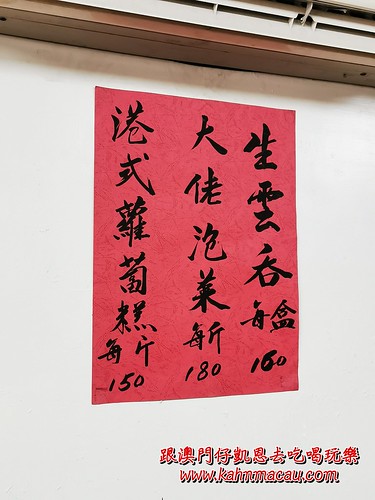 生雲吞每盒160
大佬泡菜每斤180
港式蘿蔔糕每斤150
跟澳門仔凱恩去吃喝玩樂
www.kahnmacau.com